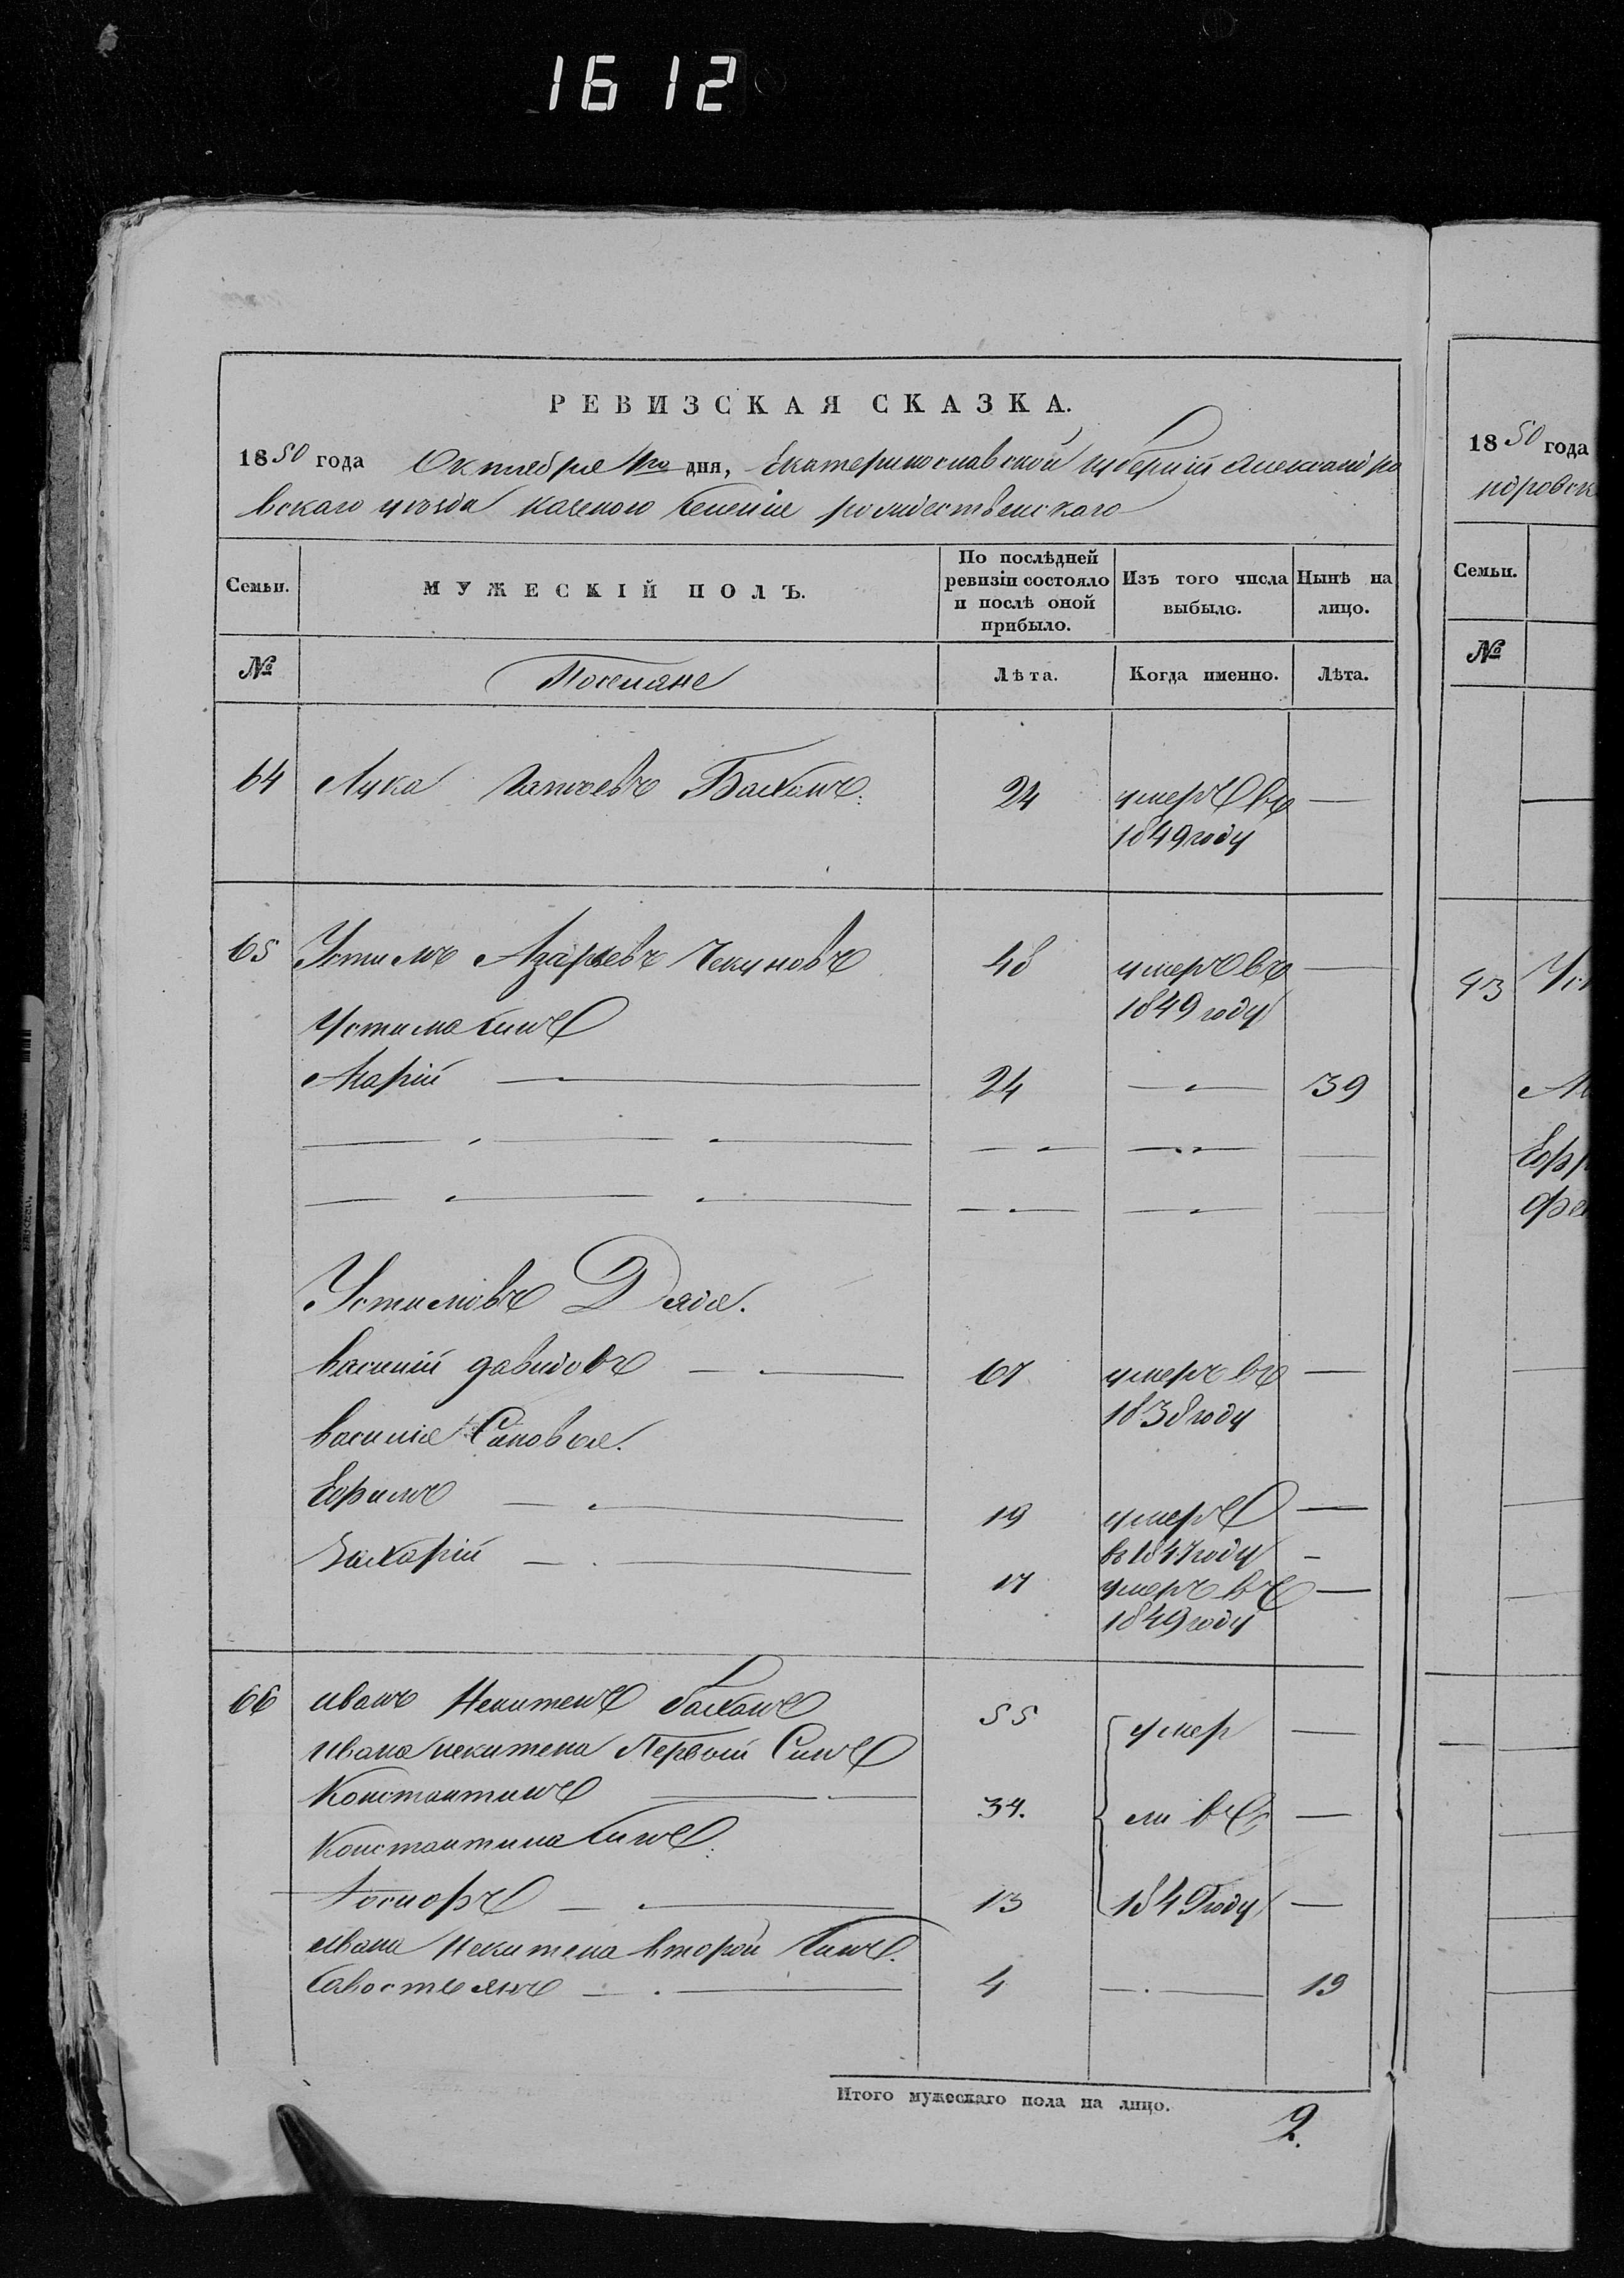 1612
РЕВИЗСКАЯ СКАЗКА.
1850 года Октебре 1го дня, Екатеринославской губерніи Александро
вского уезда казеного селеніе рождественского
Семьи. МУЖЕСКІЙ ПОЛЪ. По послѣдней ревизіи состояло и послѣ оной прибыло. Изъ того числа выбыло. Нынѣ на лицо.
№ Поселяне Лѣта. Когда именно. Лѣта.
64 Лука Баханъ. 24 умеръ въ —
1849 году
65 Устимъ Азарьевъ Чекуновъ 48 умеръ въ —
1849 году
Устима синъ
Марій — 24 — 39
Устимовъ Дядя.
василій давидовъ — 67 умеръ въ —
1838 году
василія Синовья.
Ефримъ — 19 умеръ —
в 1847 году —
Захарій — 17 умеръ въ —
1849 году
66 иванъ Некитенъ баханъ 55 умер —
Ивана некитена Первый Синъ
Константинъ — 34. ли въ —
Константина синъ
— 13 1849 году —
ивана Некитена второй синъ.
Савостьянъ — 4 — 19
Итого мужескаго пола на лицо. 2.
1850 года
Семьи.
№
93 Уст